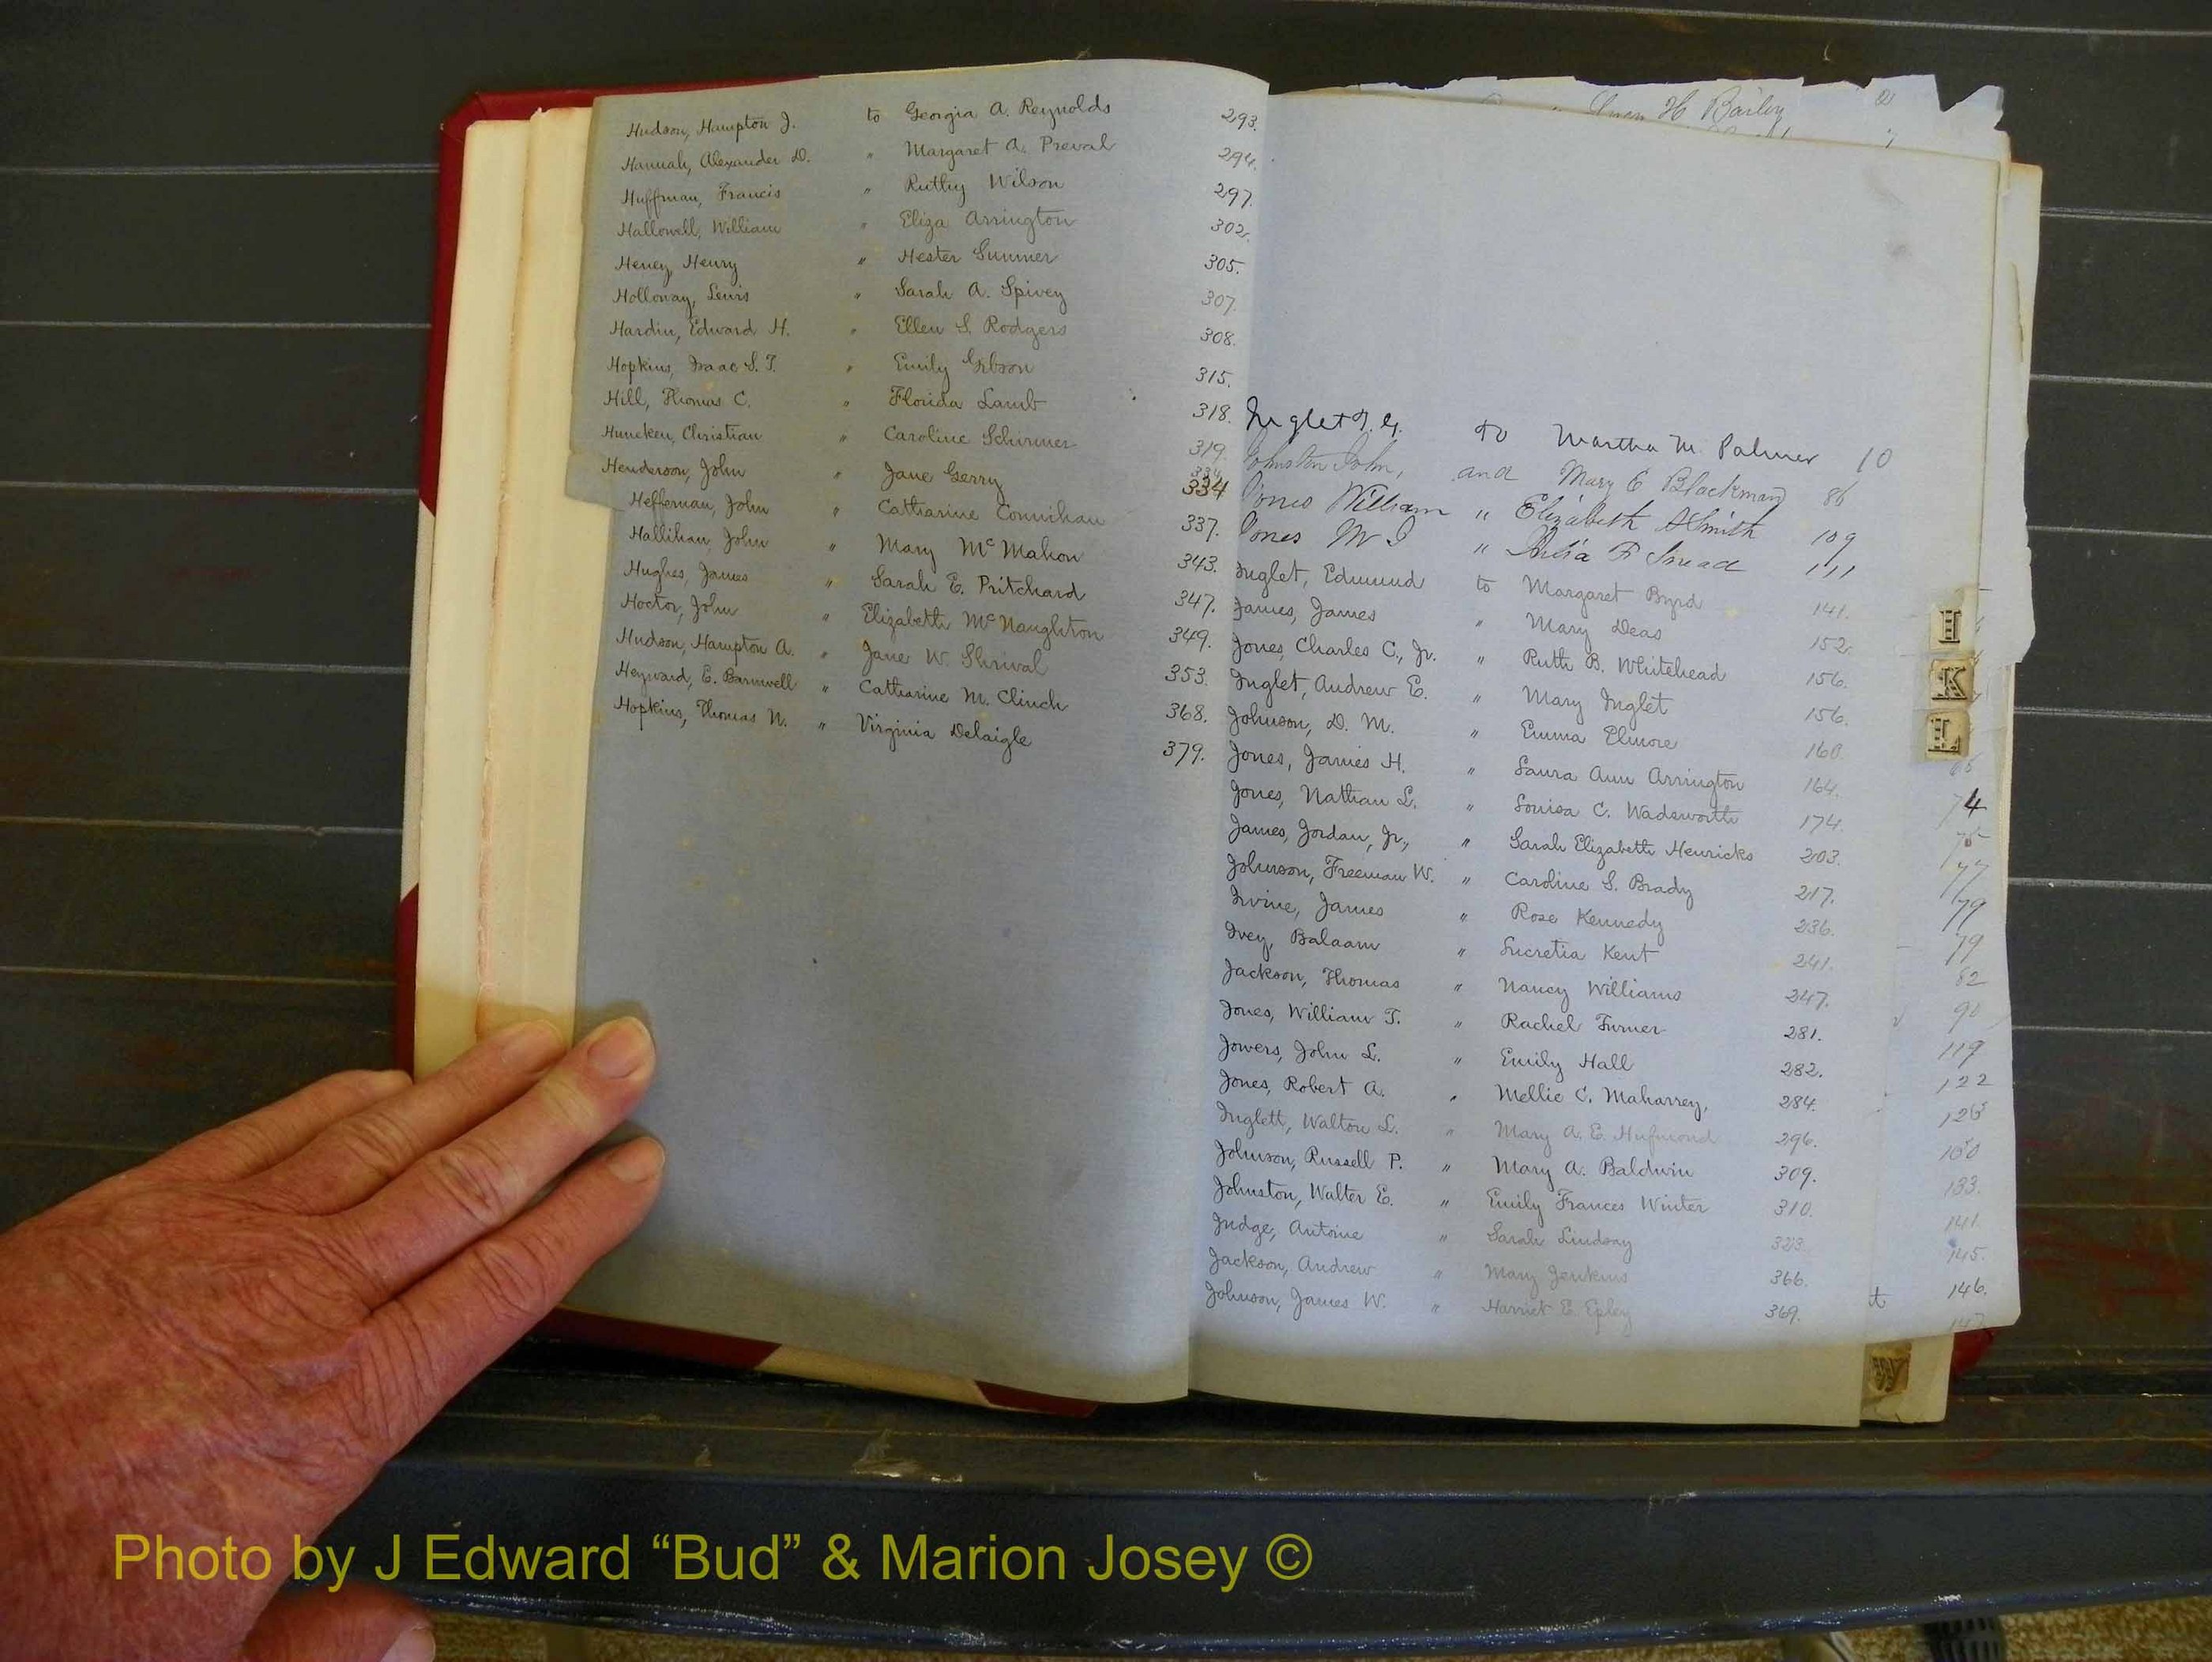 Hudson, Hampton J. to Georgia A. Reynolds 293.
Hannah, Alexander D. " Margaret A. Preval 294.
Huffman, Francis " Ruthy Wilson 297.
Hallowell, William " Eliza Arrington 302.
Heney, Henry " Hester Sumner 305.
Holloway, Lewis " Sarah A. Spivey 307.
Hardin, Edward H. " Ellen S. Rodgers 308.
Hopkins, Isaac S. T. " Emily Gibson 315.
Hill, Thomas C. " Florida Lamb 318.
Huncken, Christian " Caroline Schirmer 319.
Henderson, John " Jane Gerry 334
Heffernan, John " Catharine Connihan 334
Hallihan, John " Mary McMahon 337.
Hughes, James " Sarah E. Pritchard 343.
Hoctor, John " Elizabeth McNaughton 347.
Hudson, Hampton A. " Jane W. Shrival 349.
Heyward, E. Barnwell " Catharine M. Clinch 353.
Hopkins, Thomas N. " Virginia Delaigle 368.
379.
Owen H Bailey
Inglet to Martha M. Palmer 10
Johnston John, and Mary E Blackman 86
Jones William " Elizabeth A Smith 109
Jones " F Snead 111
Inglet, Edmund to Margaret Byrd 141.
James, James " Mary Deas 152.
Jones, Charles C., Jr. " Ruth B. Whitehead 156.
Inglet, Andrew E. " Mary Inglet 156.
Johnson, D. M. " Emma Elmore 160.
Jones, James H. " Laura Ann Arrington 164.
Jones, Nathan L. " Louisa C. Wadsworth 174.
James, Jordan, Jr., " Sarah Elizabeth Henricks 203.
Johnson, Freeman W. " Caroline S. Brady 217.
Irvine, James " Rose Kennedy 236.
Ivey, Balaam " Lucretia Kent 241.
Jackson, Thomas " Nancy Williams 247.
Jones, William T. " Rachel Turner 281.
Jowers, John L. " Emily Hall 282.
Jones, Robert A. " Mellie C. Maharrey, 284.
Inglett, Walton L. " Mary A. E. 296.
Johnson, Russell P. " Mary A. Baldwin 309.
Johnston, Walter E. " Emily Frances Winter 310.
Judge, Antoine " Sarah Lindsay 323.
Jackson, Andrew " Mary Jenkins 366.
Johnson, James W. " Harriet E. Epley 369.
I
K
L
74
77
79
79
82
90
119
122
133.
141.
145.
t 146.
147
W
Photo by J Edward “Bud” & Marion Josey ©